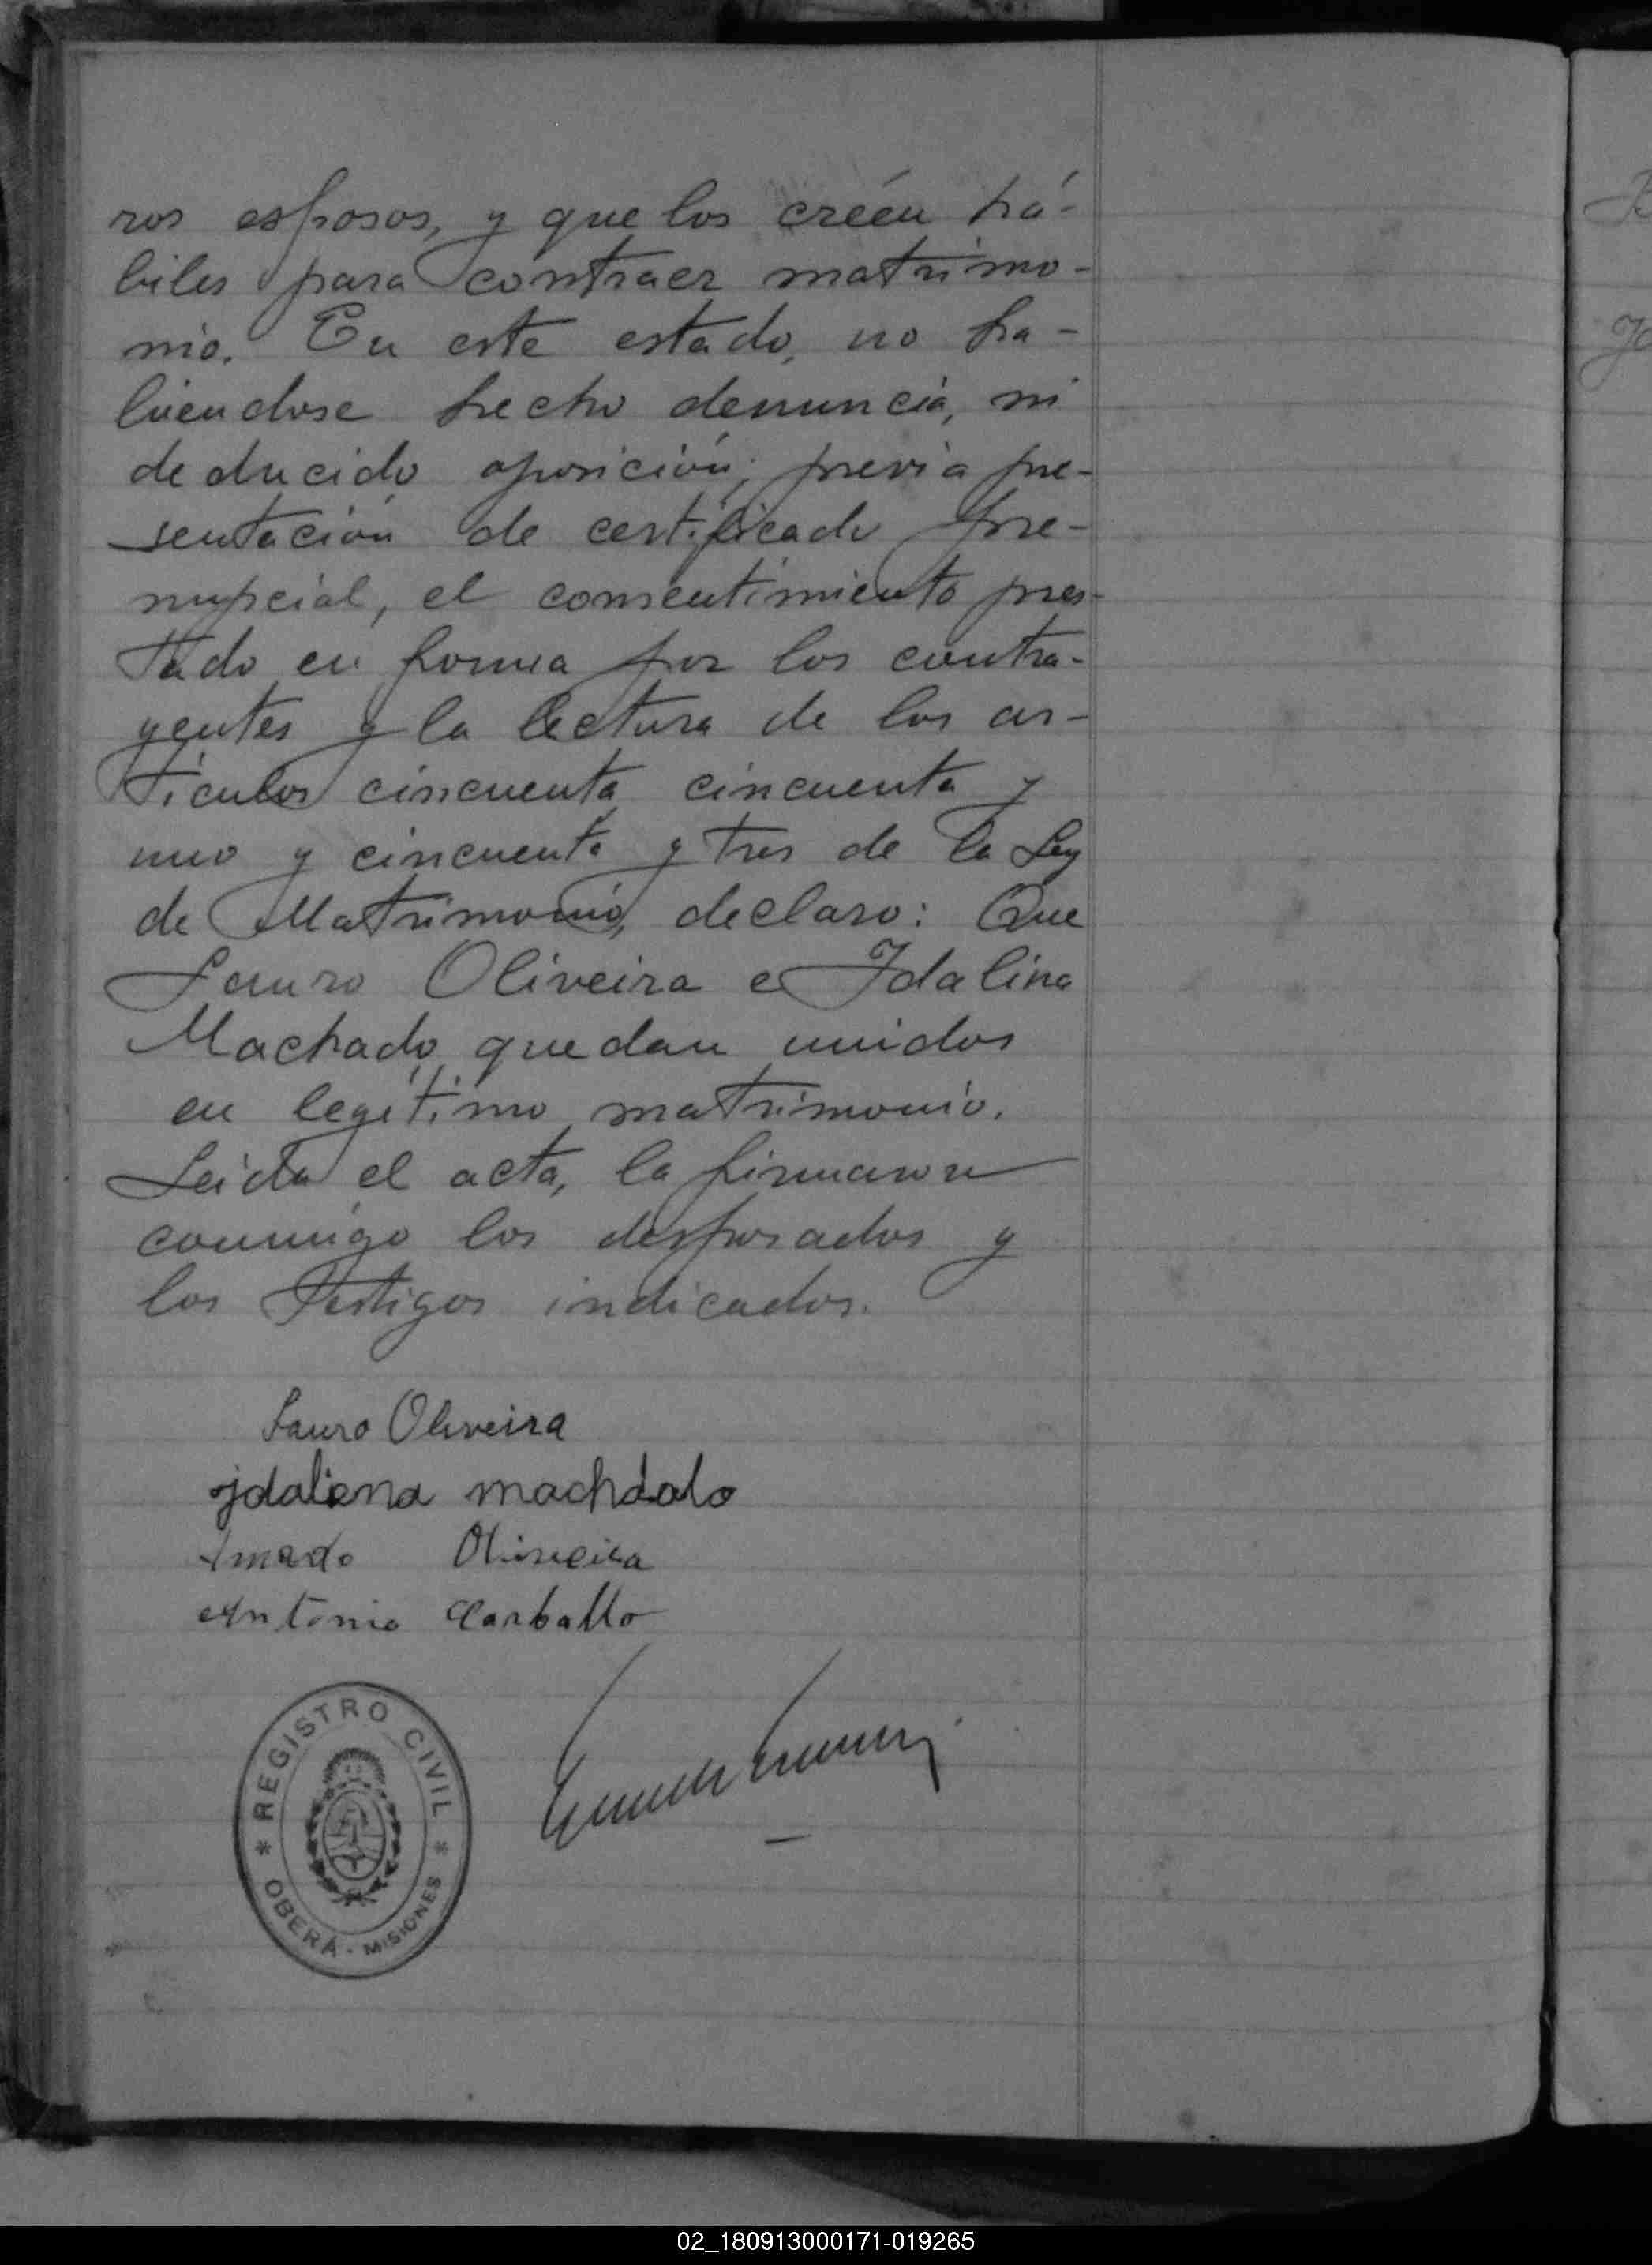 ros esposos, y que los créen há-
biles para contraer matrimo-
nio. En este estado, no ha-
biendose hecho denuncia, ni
deducido oposición; previa pre-
sentación de certificado pre-
nupcial, el consentimiento pres-
tado en forma por los contra-
yentes y la lectura de los ar-
tículos cincuenta, cincuenta y
uno y cincuenta y tres de la Ley
de Matrimonio, declaro: Que
Lauro Oliveira e Idalina
Machado, quedan unidos
en legítimo matrimonio.
Leida el acta, la firmaron
conmigo los desposados y
los testigos indicados.
Lauro Oliveira
jdaliena machdalo
Amado Oliveira
Antonio Carballo
REGISTRO CIVIL
OBERÁ - MISIONES
02_180913000171-019265